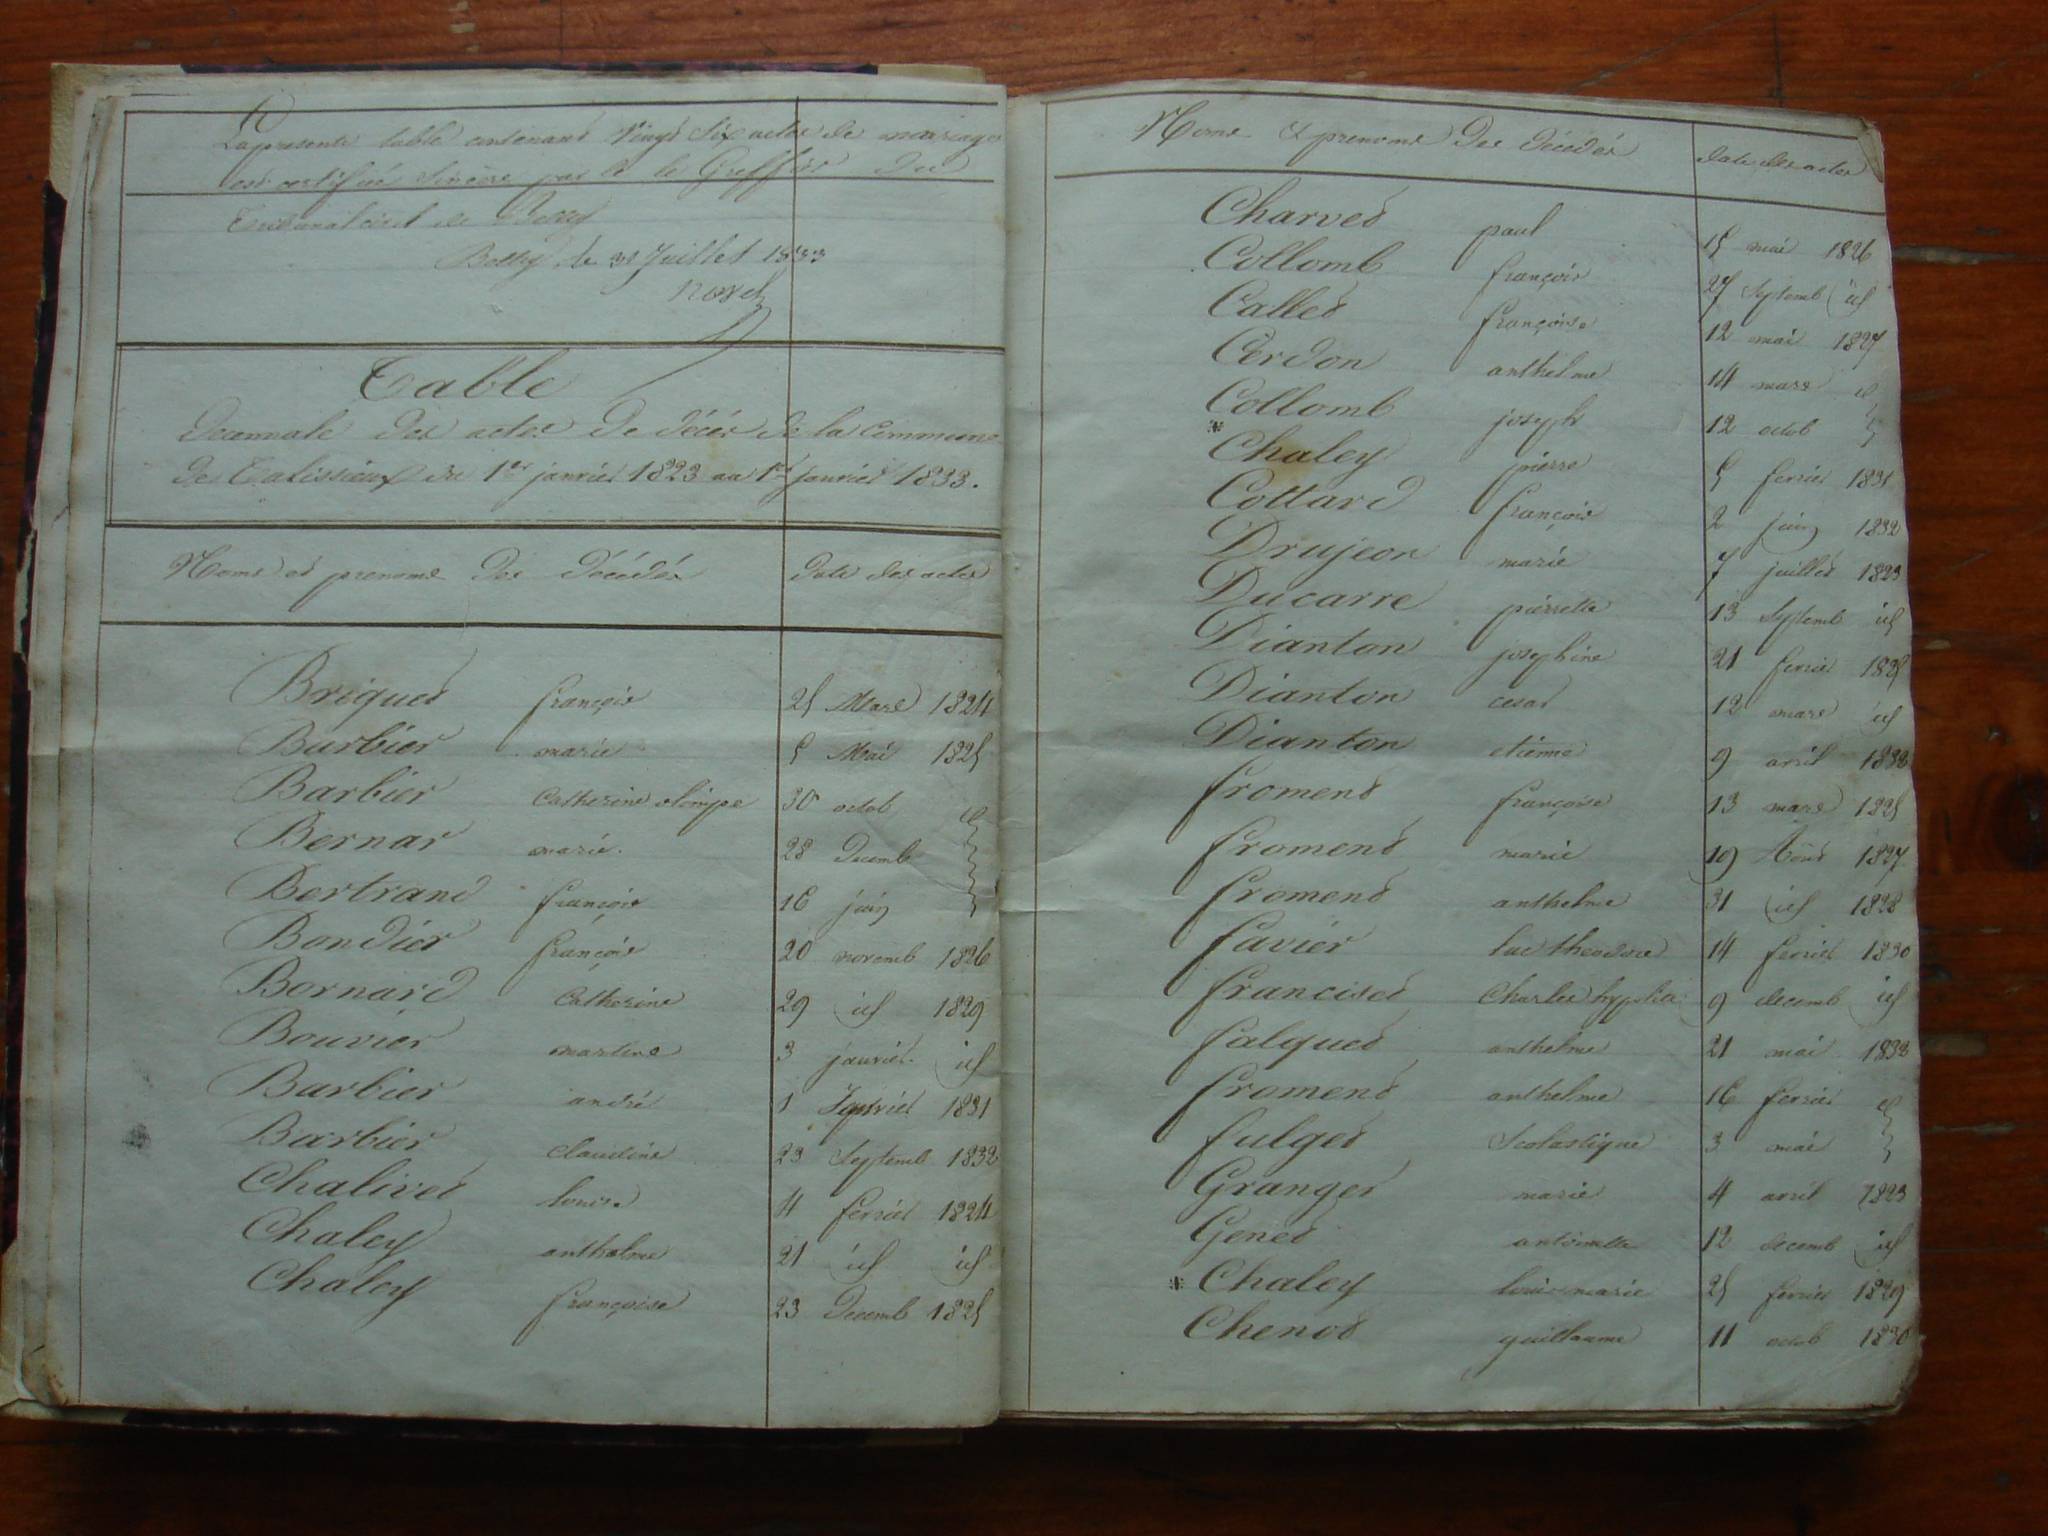 La presente table contenant Vingt Six actes de mariage
est certifiée Sincere par le Greffier du
Tribunal civil de Belley
Belley le 31 Juillet 1833
Table
décennale des actes de décès de la Commune
de Talissieux du 1er janvier 1823 au 1er janvier 1833.
Noms et prenoms des décédés date des actes
Briquet françois 25 Mars 1824
Barbier marie 5 Mai 1825
Barbier Catherine olimpe 30 octob id
Bernar marie 28 Decemb
Bertrand françois 16 juin
Bondier françois 20 novemb 1826
Bornard Catherine 29 id 1829
Bouvier martine 3 janvier id
Barbier andré 1 1831
Barbier claudine 23 Septemb 1832
Chalivet louise 4 fevrier 1824
Chaley anthelme 21 id id
Chaley françoise 23 Decemb 1825
Noms et prenoms des décédés date des actes
Charvet paul 15 mai 1826
Collomb françois 27 Septemb id
Callet françoise 12 mai 1827
Cerdon anthelme 14 mars id
Collomb joseph 12 octob
* Chaley pierre 5 fevrier 1831
Cottard françois 2 juin 1832
Drujeon marie 7 juillet 1823
Ducarre pierrette 13 Septemb id
Dianton josephine 21 fevrier 1825
Dianton cesar 12 mars id
Dianton etienne 9 avril 1832
froment françoise 13 mars 1825
froment marie 19 Aout 1827
froment anthelme 31 id 1828
favier luc theodore 14 fevrier 1830
franciset Charles 9 decemb id
falquet anthelme 21 mai 1832
froment anthelme 16 fevrier id
fulget Scolastique 3 mai
Granger marie 4 avril 1823
Genet antoinette 12 decemb id
* Chaley louis marie 25 fevrier 1829
Chenot guillaume 11 octob 1830